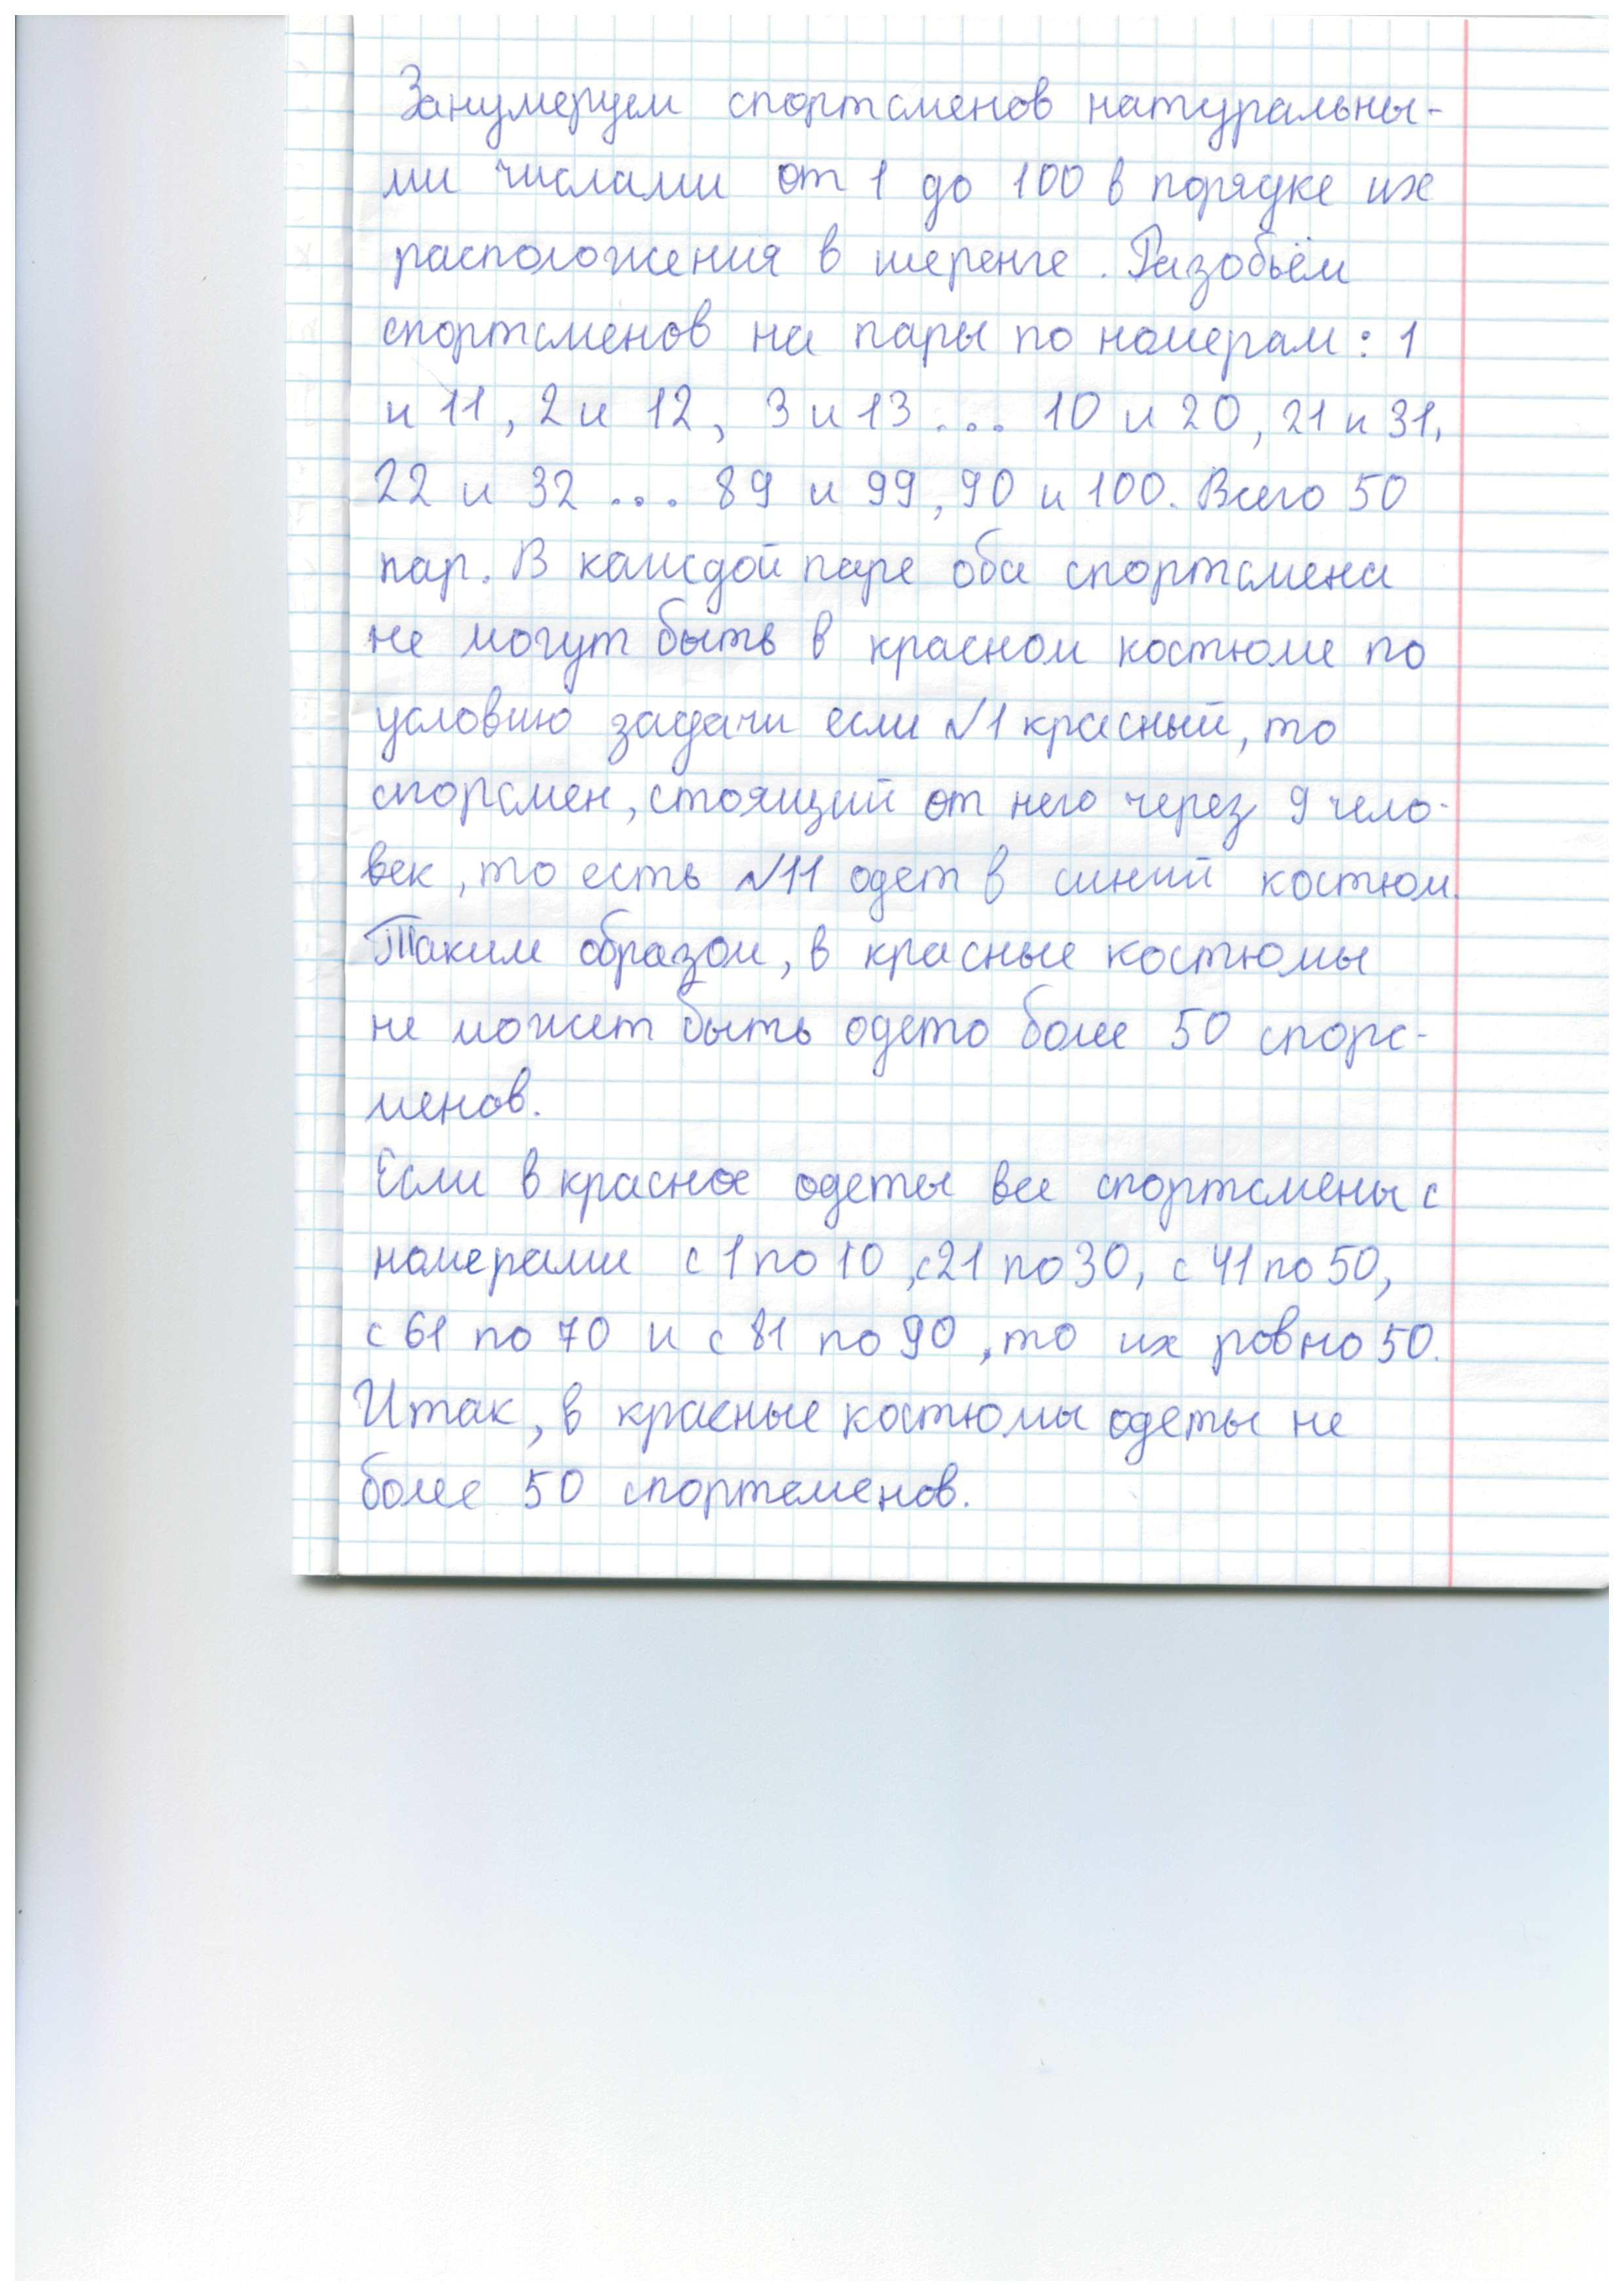 Занумеруем спортсменов натуральны-
ми числами от 1 до 100 в порядке их
расположения в шеренге. Разобьём
спортсменов на пары по номерам: 1
и 11, 2 и 12, 3 и 13 ... 10 и 20, 21 и 31,
22 и 32 ... 89 и 99, 90 и 100. Всего 50
пар. В каждой паре оба спортсмена
не могут быть в красном костюме по
условию задачи если №1 красный, то
спорсмен, стоящий от него через 9 чело-
век, то есть №11 одет в синий костюм.
Таким образом, в красные костюмы
не может быть одето более 50 спорс-
менов.
Если в красное одеты все спортсмены с
номерами с 1 по 10, с 21 по 30, с 41 по 50,
с 61 по 70 и с 81 по 90, то их ровно 50.
Итак, в красные костюмы одеты не
более 50 спортсменов.